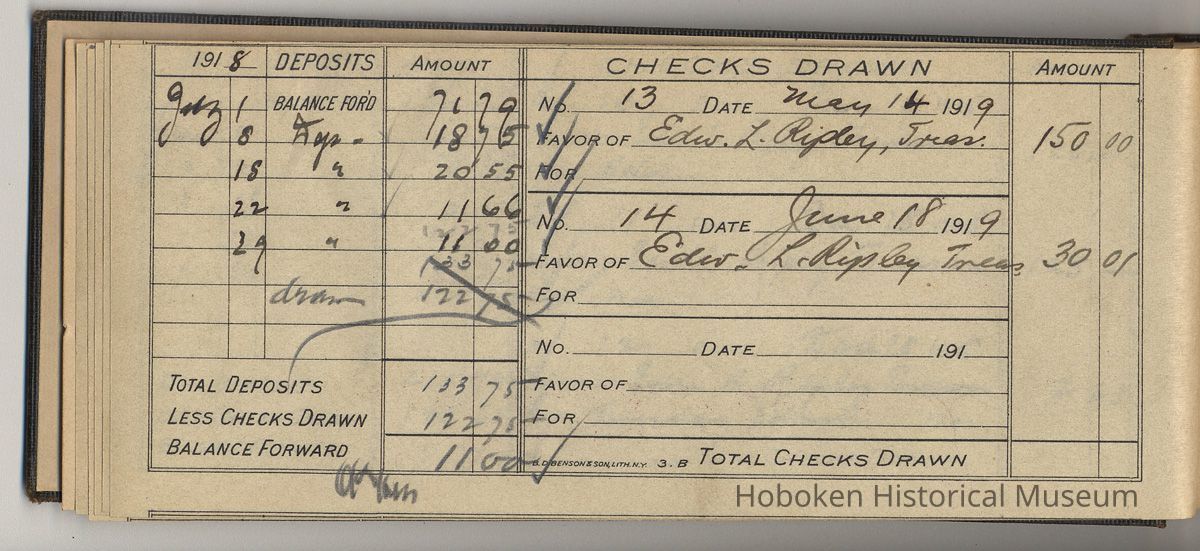 1918 DEPOSITS AMOUNT
1 BALANCE FOR'D 71 79
8 Dep. 18 75
18 " 20 55
22 " 11 66
122 75
29 " 11 00
133 75
drawn 122 75
TOTAL DEPOSITS 133 75
LESS CHECKS DRAWN 122 75
BALANCE FORWARD 11 00
CHECKS DRAWN AMOUNT
No. 13 DATE May 14 1919
FAVOR OF Edw. L. Ripley, Treas. 150 00
FOR
No. 14 DATE June 18 1919
FAVOR OF Edw. L. Ripley Treas 30 01
FOR
No. DATE 191
FAVOR OF
FOR
B.D. BENSON & SON, LITH. N.Y. 3. B TOTAL CHECKS DRAWN
Hoboken Historical Museum